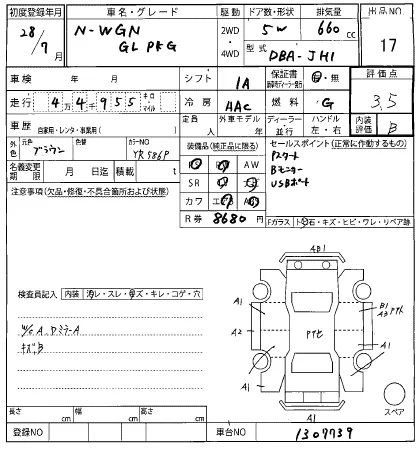 初度登録年月 車名・グレード 駆動 ドア数・形状 排気量 出品NO
28/7月 N-WGN GL PKG 2WD 4WD 5W 660 cc 17
型式 DBA-JH1
車検 年 月 シフト IA 保証書 有・無 評価点
走行 4 4千 9 5 5 キロ・マイル 冷房 AAC 燃料 G 3.5
車歴 自家用・レンタ・事業用( ) 定員 人 外車モデル 年 ディーラー・並行 ハンドル 左・右 内装評価 B
外色 元色 ブラウン 色替 カラーNO YR586P
装備品(純正品に限る) セールスポイント(正常に作動するもの)
AW
SR
カワ
Pスタート
Bモニター
USBポート
名義変更期限 月 日迄 積載 t
R券 8680円
注意事項(欠品・修復・不具合箇所および状態)
Fガラス ト石・キズ・ヒビ・ワレ・リペア跡
検査員記入 内装 汚レ・スレ・キズ・キレ・コゲ・穴
W/G A、DミラーA
キズB
AB1
A1
A2
A1
B1
A3
A1
A1
スペア
長さ cm 幅 cm 高さ cm
登録NO 車台NO 1307739